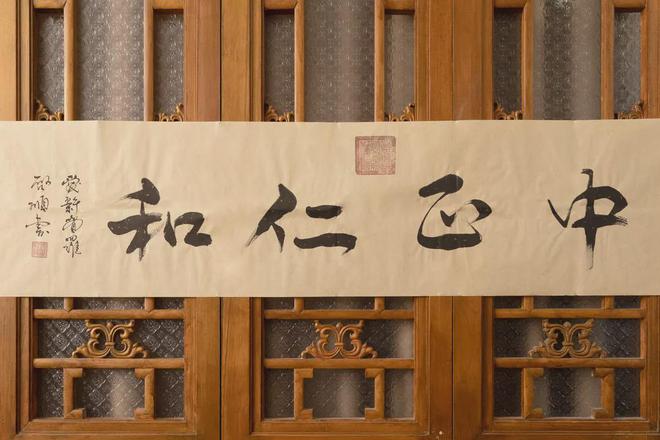 中正仁和
愛新覺羅
啟順雲